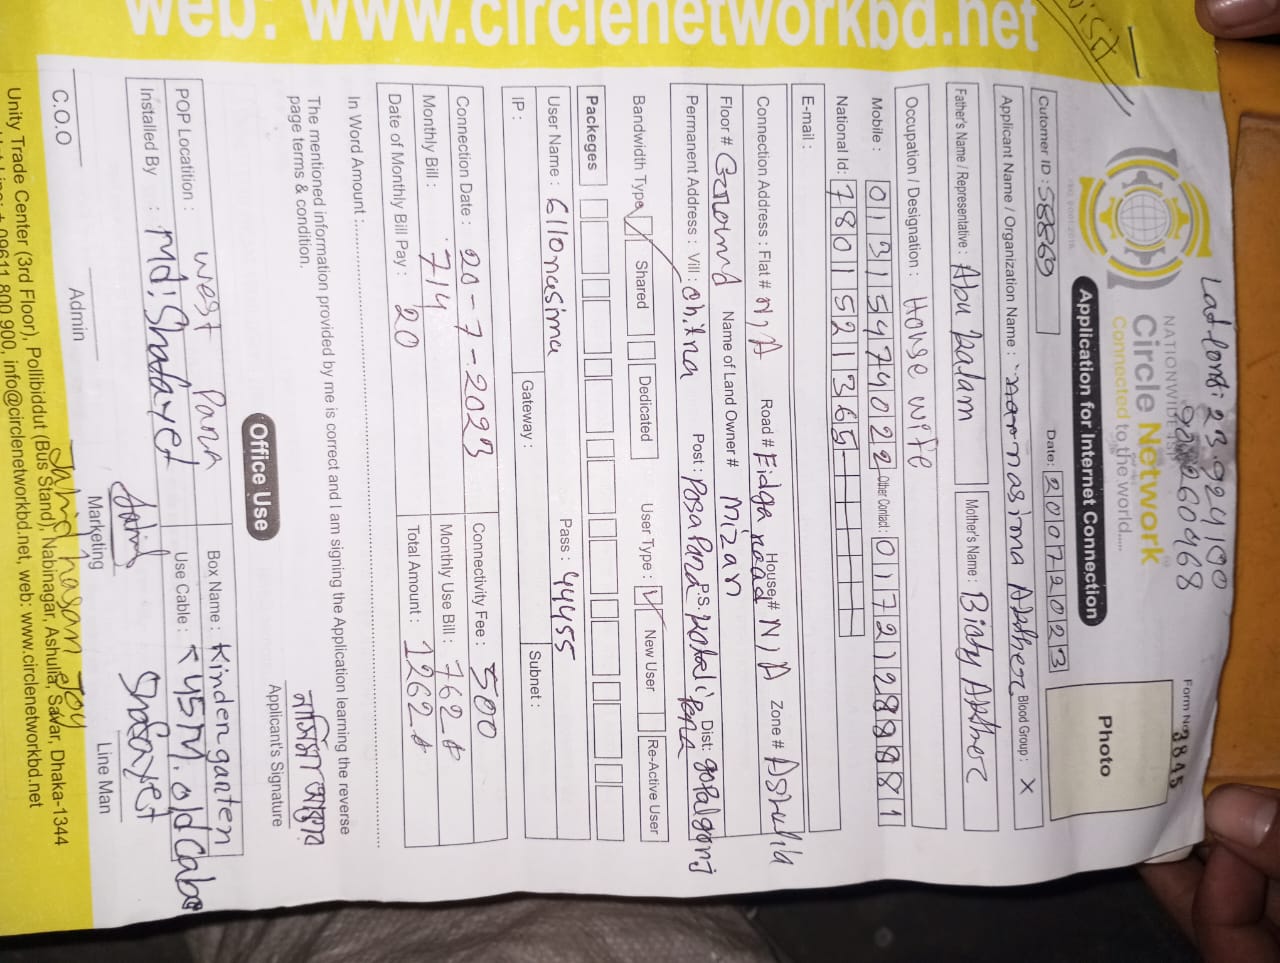 Lat long: 23.924190
90.260468
Form No 3845
NATIONWIDE ISP
Circle Network
Connected to the world.....
Application for Internet Connection
Photo
Cutomer ID : 58869
Date: 20072023
Applicant Name / Organization Name : nasima Akther
Blood Group : X
Father's Name / Representative : Abu kalam
Mother's Name : Biaty Akther
Occupation / Designation : House wife
Mobile : 01315474022
Other Contact : 01721289881
National Id : 7801521365
E-mail :
Connection Address : Flat # N/A Road # Eidga road House # N/A Zone # Ashulia
Floor # Ground Name of Land Owner # Mizan
Permanent Address : Vill : Chitna Post : Posa Para P.S. Kotali Para Dist: gopalgonj
Bandwidth Type Shared Dedicated User Type : New User Re-Active User
Packeges
User Name : 6110nasima Pass : 44455
IP : Gateway : Subnet :
Connection Date : 20-7-2023 Connectivity Fee : 500
Monthly Bill : 714 Monthly Use Bill : 762
Date of Monthly Bill Pay : 20 Total Amount : 1262
In Word Amount :
The mentioned information provided by me is correct and I am signing the Application learning the reverse
page terms & condition.
নাসিমা আক্তার
Applicant's Signature
Office Use
POP Locatition : West Para Box Name : Kindengarten
Installed By : Md: Shafayet Use Cable : 45M. old Cable
Shafayet
C.O.O Admin Marketing Line Man
Jahid hasan Joy
Unity Trade Center (3rd Floor), Pollibiddut (Bus Stand), Nabinagar, Ashulia, Savar, Dhaka-1344
09611 800 900, info@circlenetworkbd.net, web: www.circlenetworkbd.net
web: www.circlenetworkbd.net